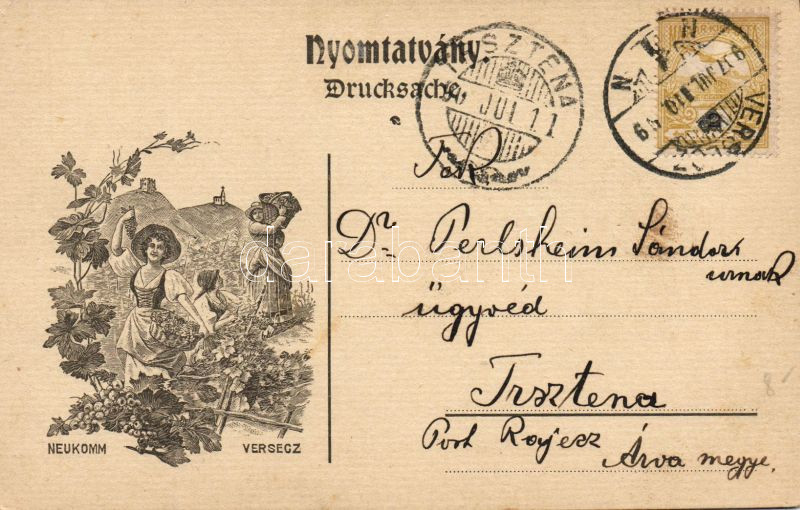 Nyomtatvány.
Drucksache.
TRSZTENA
JUL 11
VERSECZ
Dr. Perlsheim Sándor
urnak
ügyvéd
Trsztena
Post Rajecz
Árva megye
NEUKOMM VERSECZ
darabanth